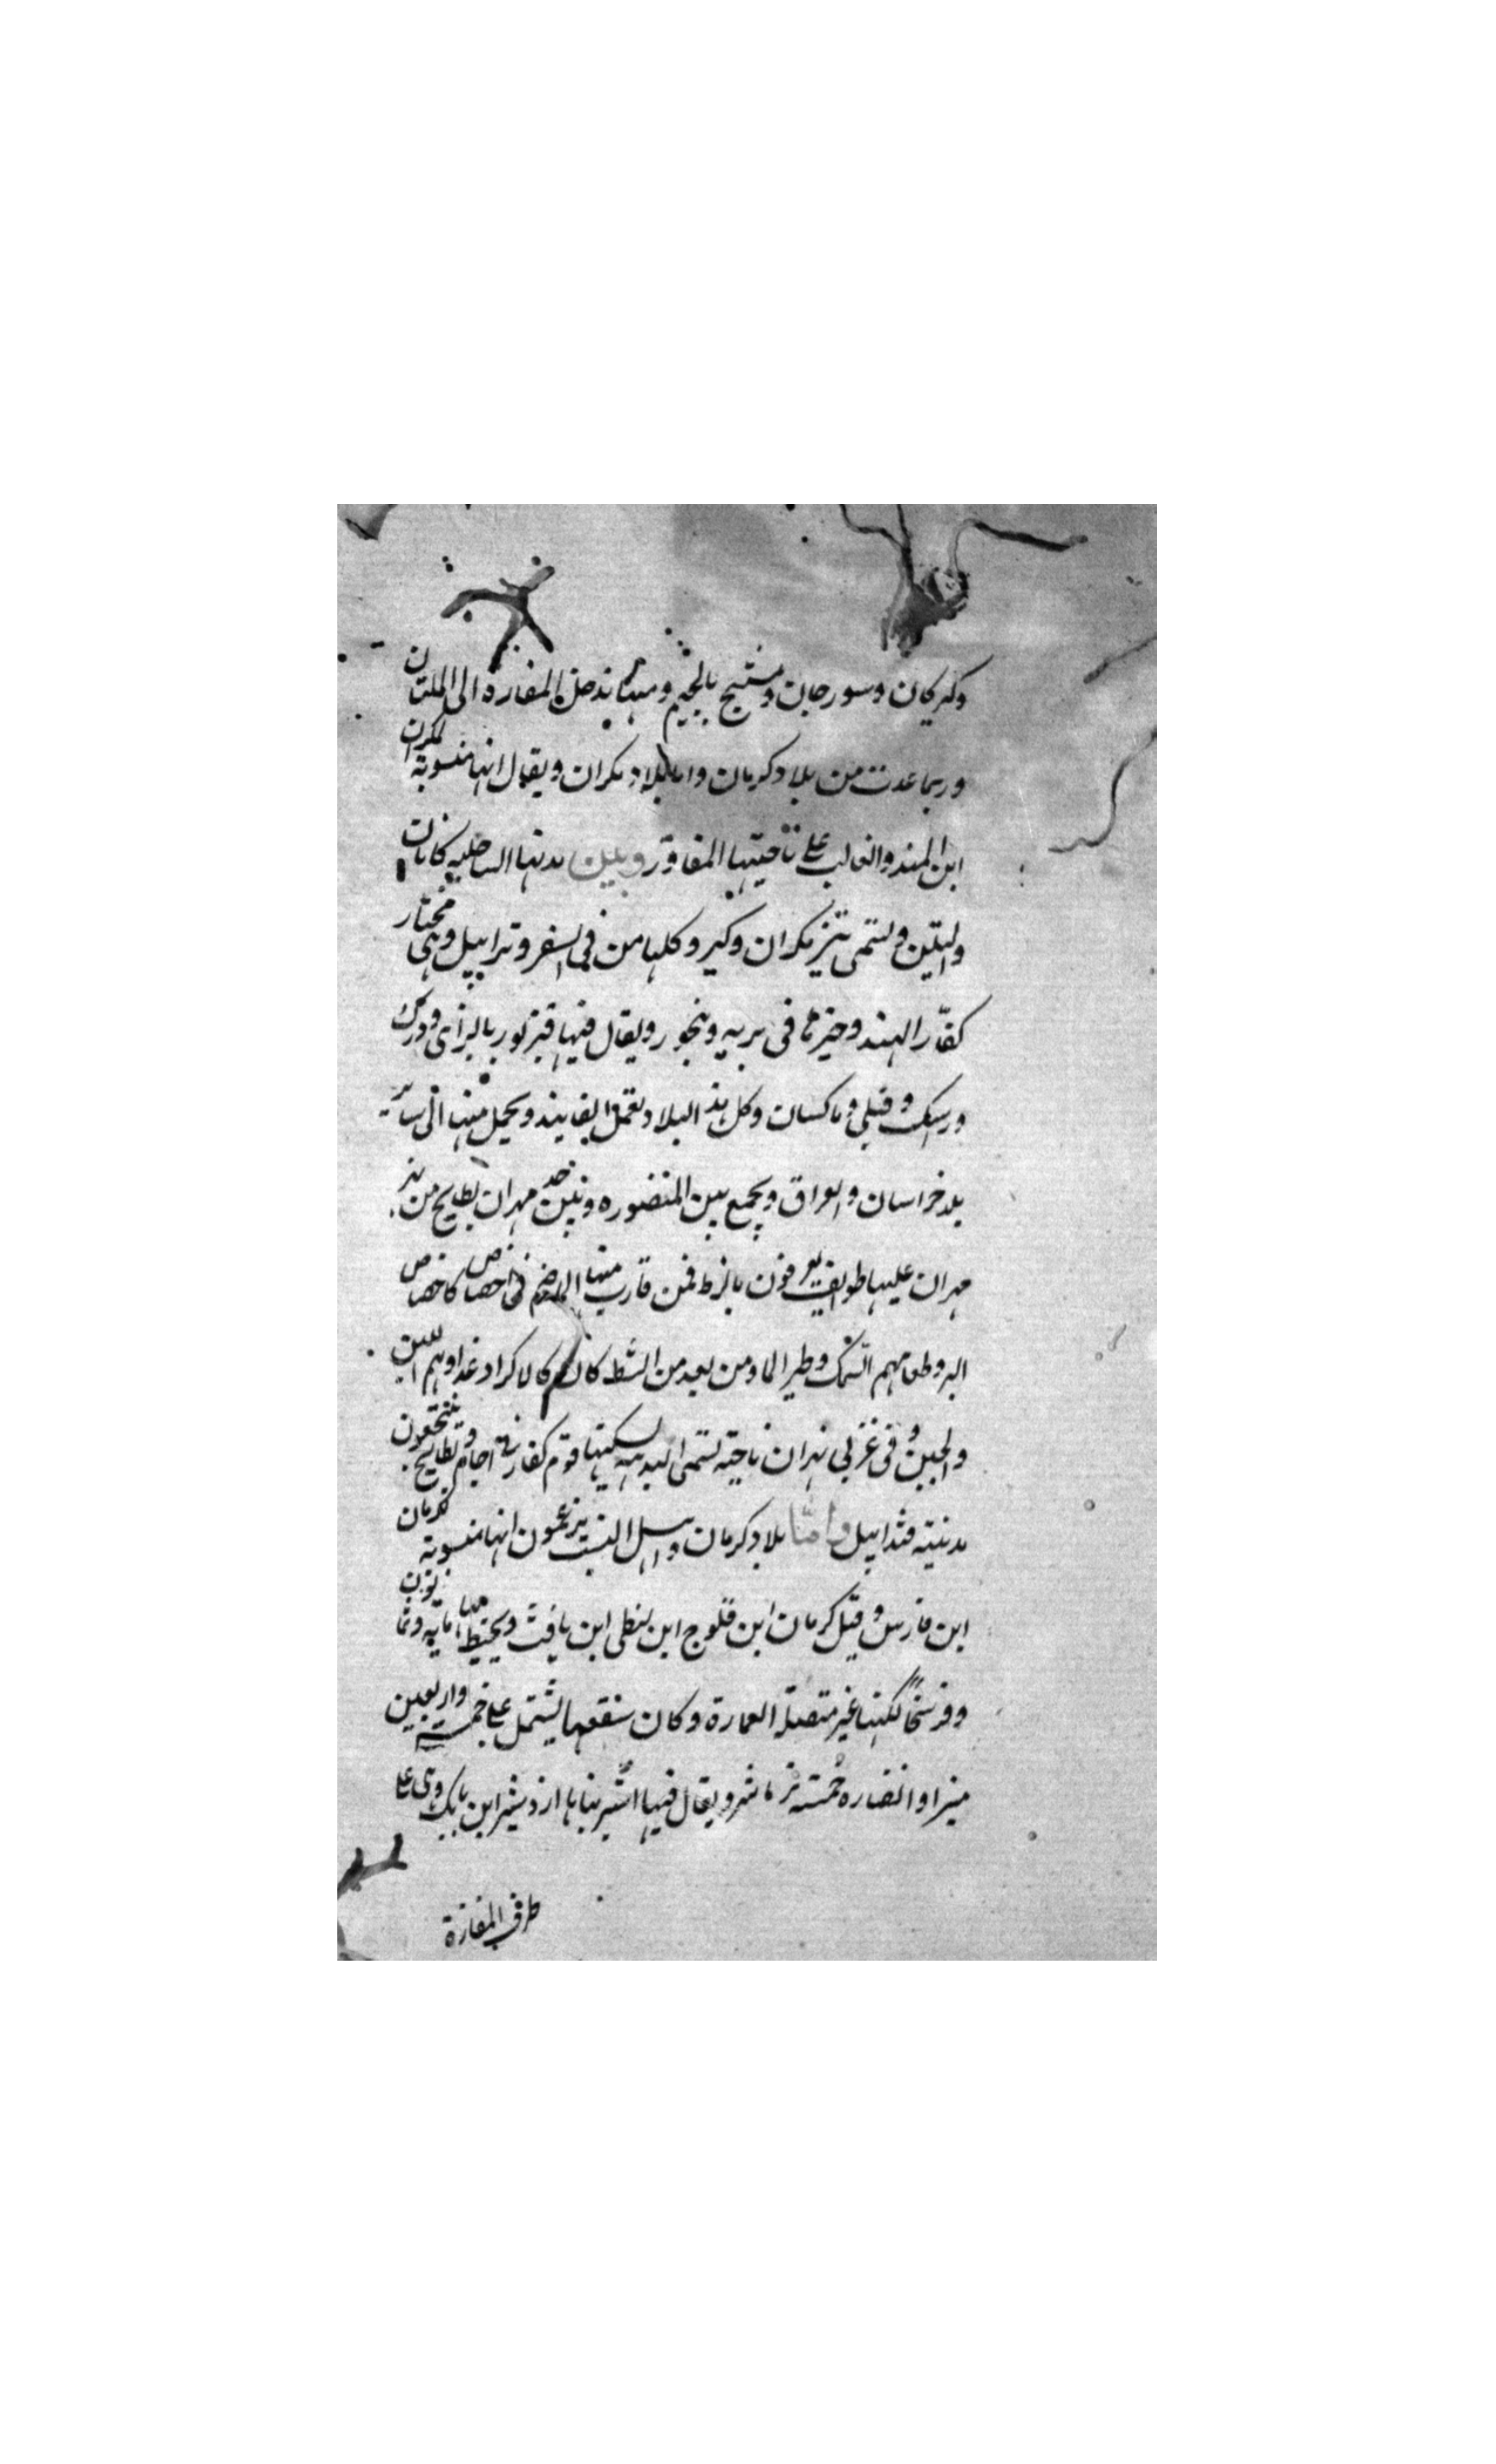 وكيركان وسورجان ومشيح بالجيم ومنها يدخل المفازه الى الملتان
وربما عدت من بلاد كرمان واما بلاد مكران ويقال انها منسوبة لمكران
ابن الهند والغالب على ناحيتها المفاوز وبين مدنها الساحلية
والتين وتسمى تيز مكران وكير وكلها من في السفر وتدابيل وهى مختار
كفار الهند وخيزها فى بريه وبنجور ويقال فيها قنزبور بالزاى ودرك
وراسك وقنبلى وماكسان وكل هذ البلاد تعمل الفانيد ويحمل منها الى ساير
بلد خراسان والعراق ويجمع بين المنصوره وبين حد مهران بطايح من
مهران عليها طوايف يعرفون بالزط فمن قارب منها الما فهم فى اخصاص كاخصاص
البر وطعامهم السمك وطير الما ومن بعد من الشط كان كالاكراد غداوهم اللبن
والجبن وفى غزبى نهران ناحية تسمى البدهه يسكنها قوم كفار فى اجام وبطايح وينتجعون
مدينة قندابيل وامّا بلاد كرمان واهل النسب يزعمون انها منسوبة لكرمان
ابن فارس وقيل كرمان ابن فلوج ابن لنطى ابن يافث ويحيط بها ماية وثمانون
وفرسخًا لكنها غير متصلة العمارة وكان سقعها يشتمل على خمسة واربعين
منبرا وانضاره خمسة نرماشر ويقال فيها اشير بناها اردشير ابن بابك وهى على
طرف المفازة